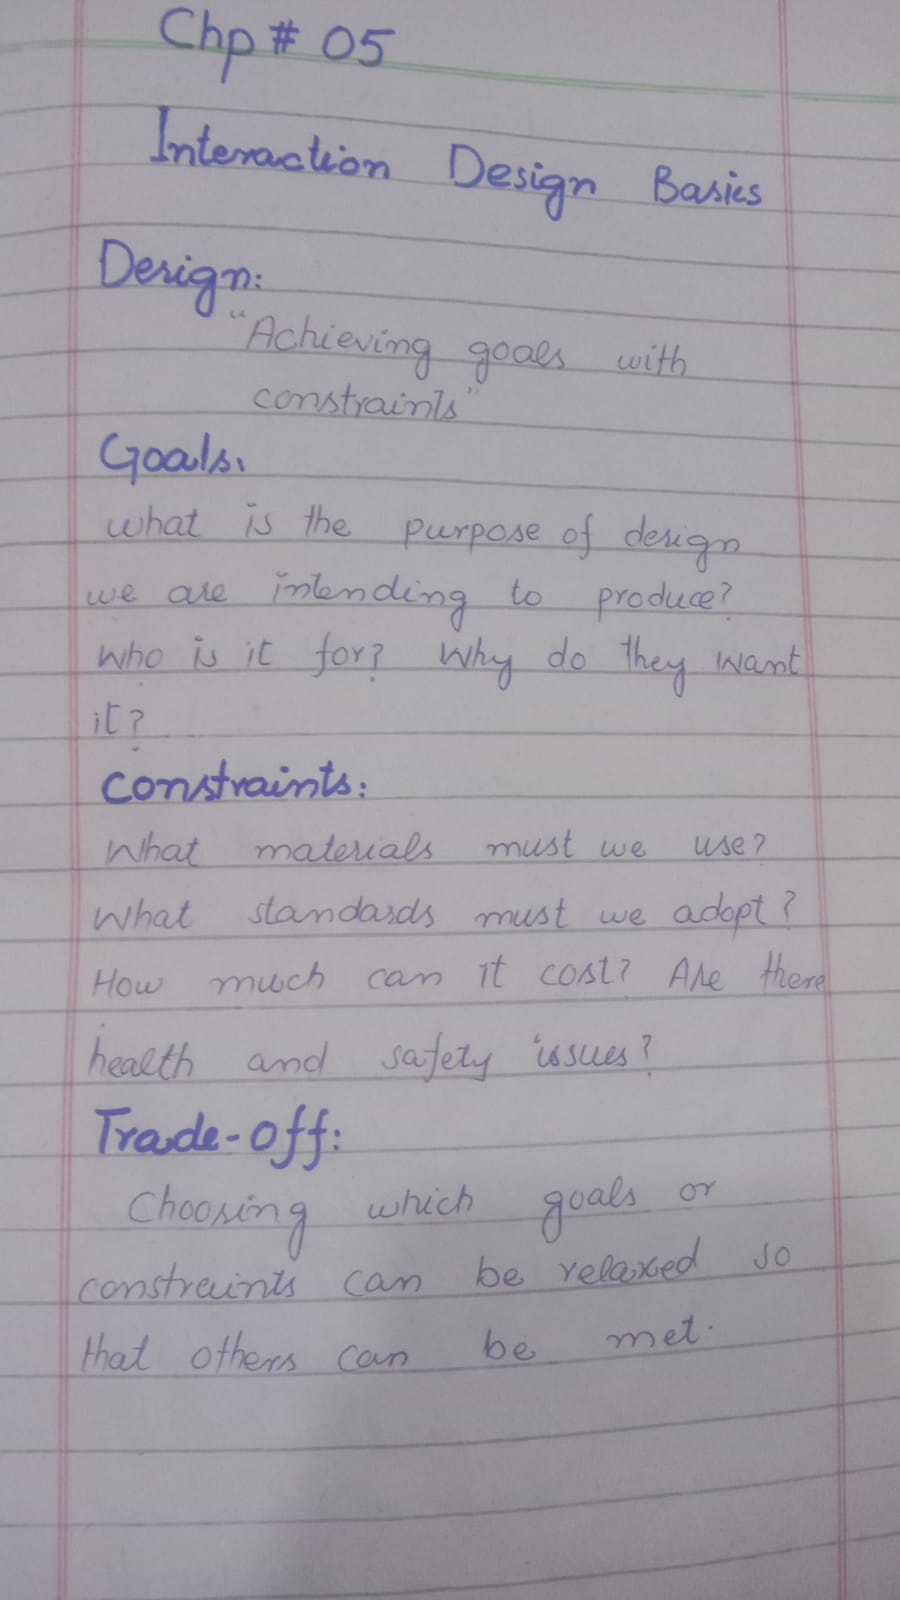 Chp # 05
Interaction Design Basics
Design:
"Achieving goals with
constraints"
Goals:
What is the purpose of design
we are intending to produce?
Who is it for? Why do they want
it?
Constraints:
What materials must we use?
What standards must we adopt?
How much can it cost? Are there
health and safety issues?
Trade-off:
Choosing which goals or
constraints can be relaxed so
that others can be met.